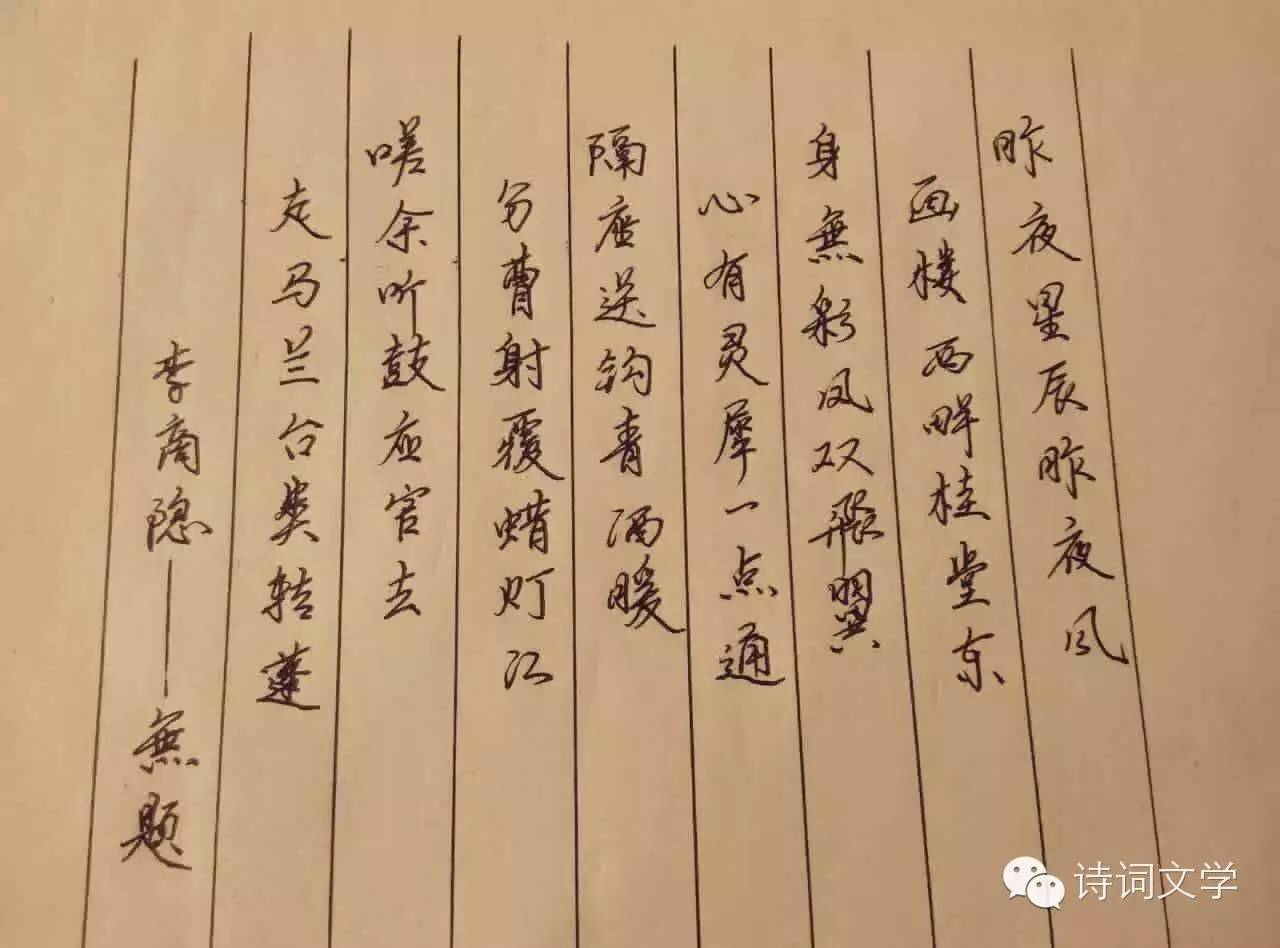 昨夜星辰昨夜风
画楼西畔桂堂东
身無彩凤双飛翼
心有灵犀一点通
隔座送钩青酒暖
分曹射覆蜡灯江
嗟余听鼓应官去
走马兰台类转蓬
李商隐——無题
诗词文学